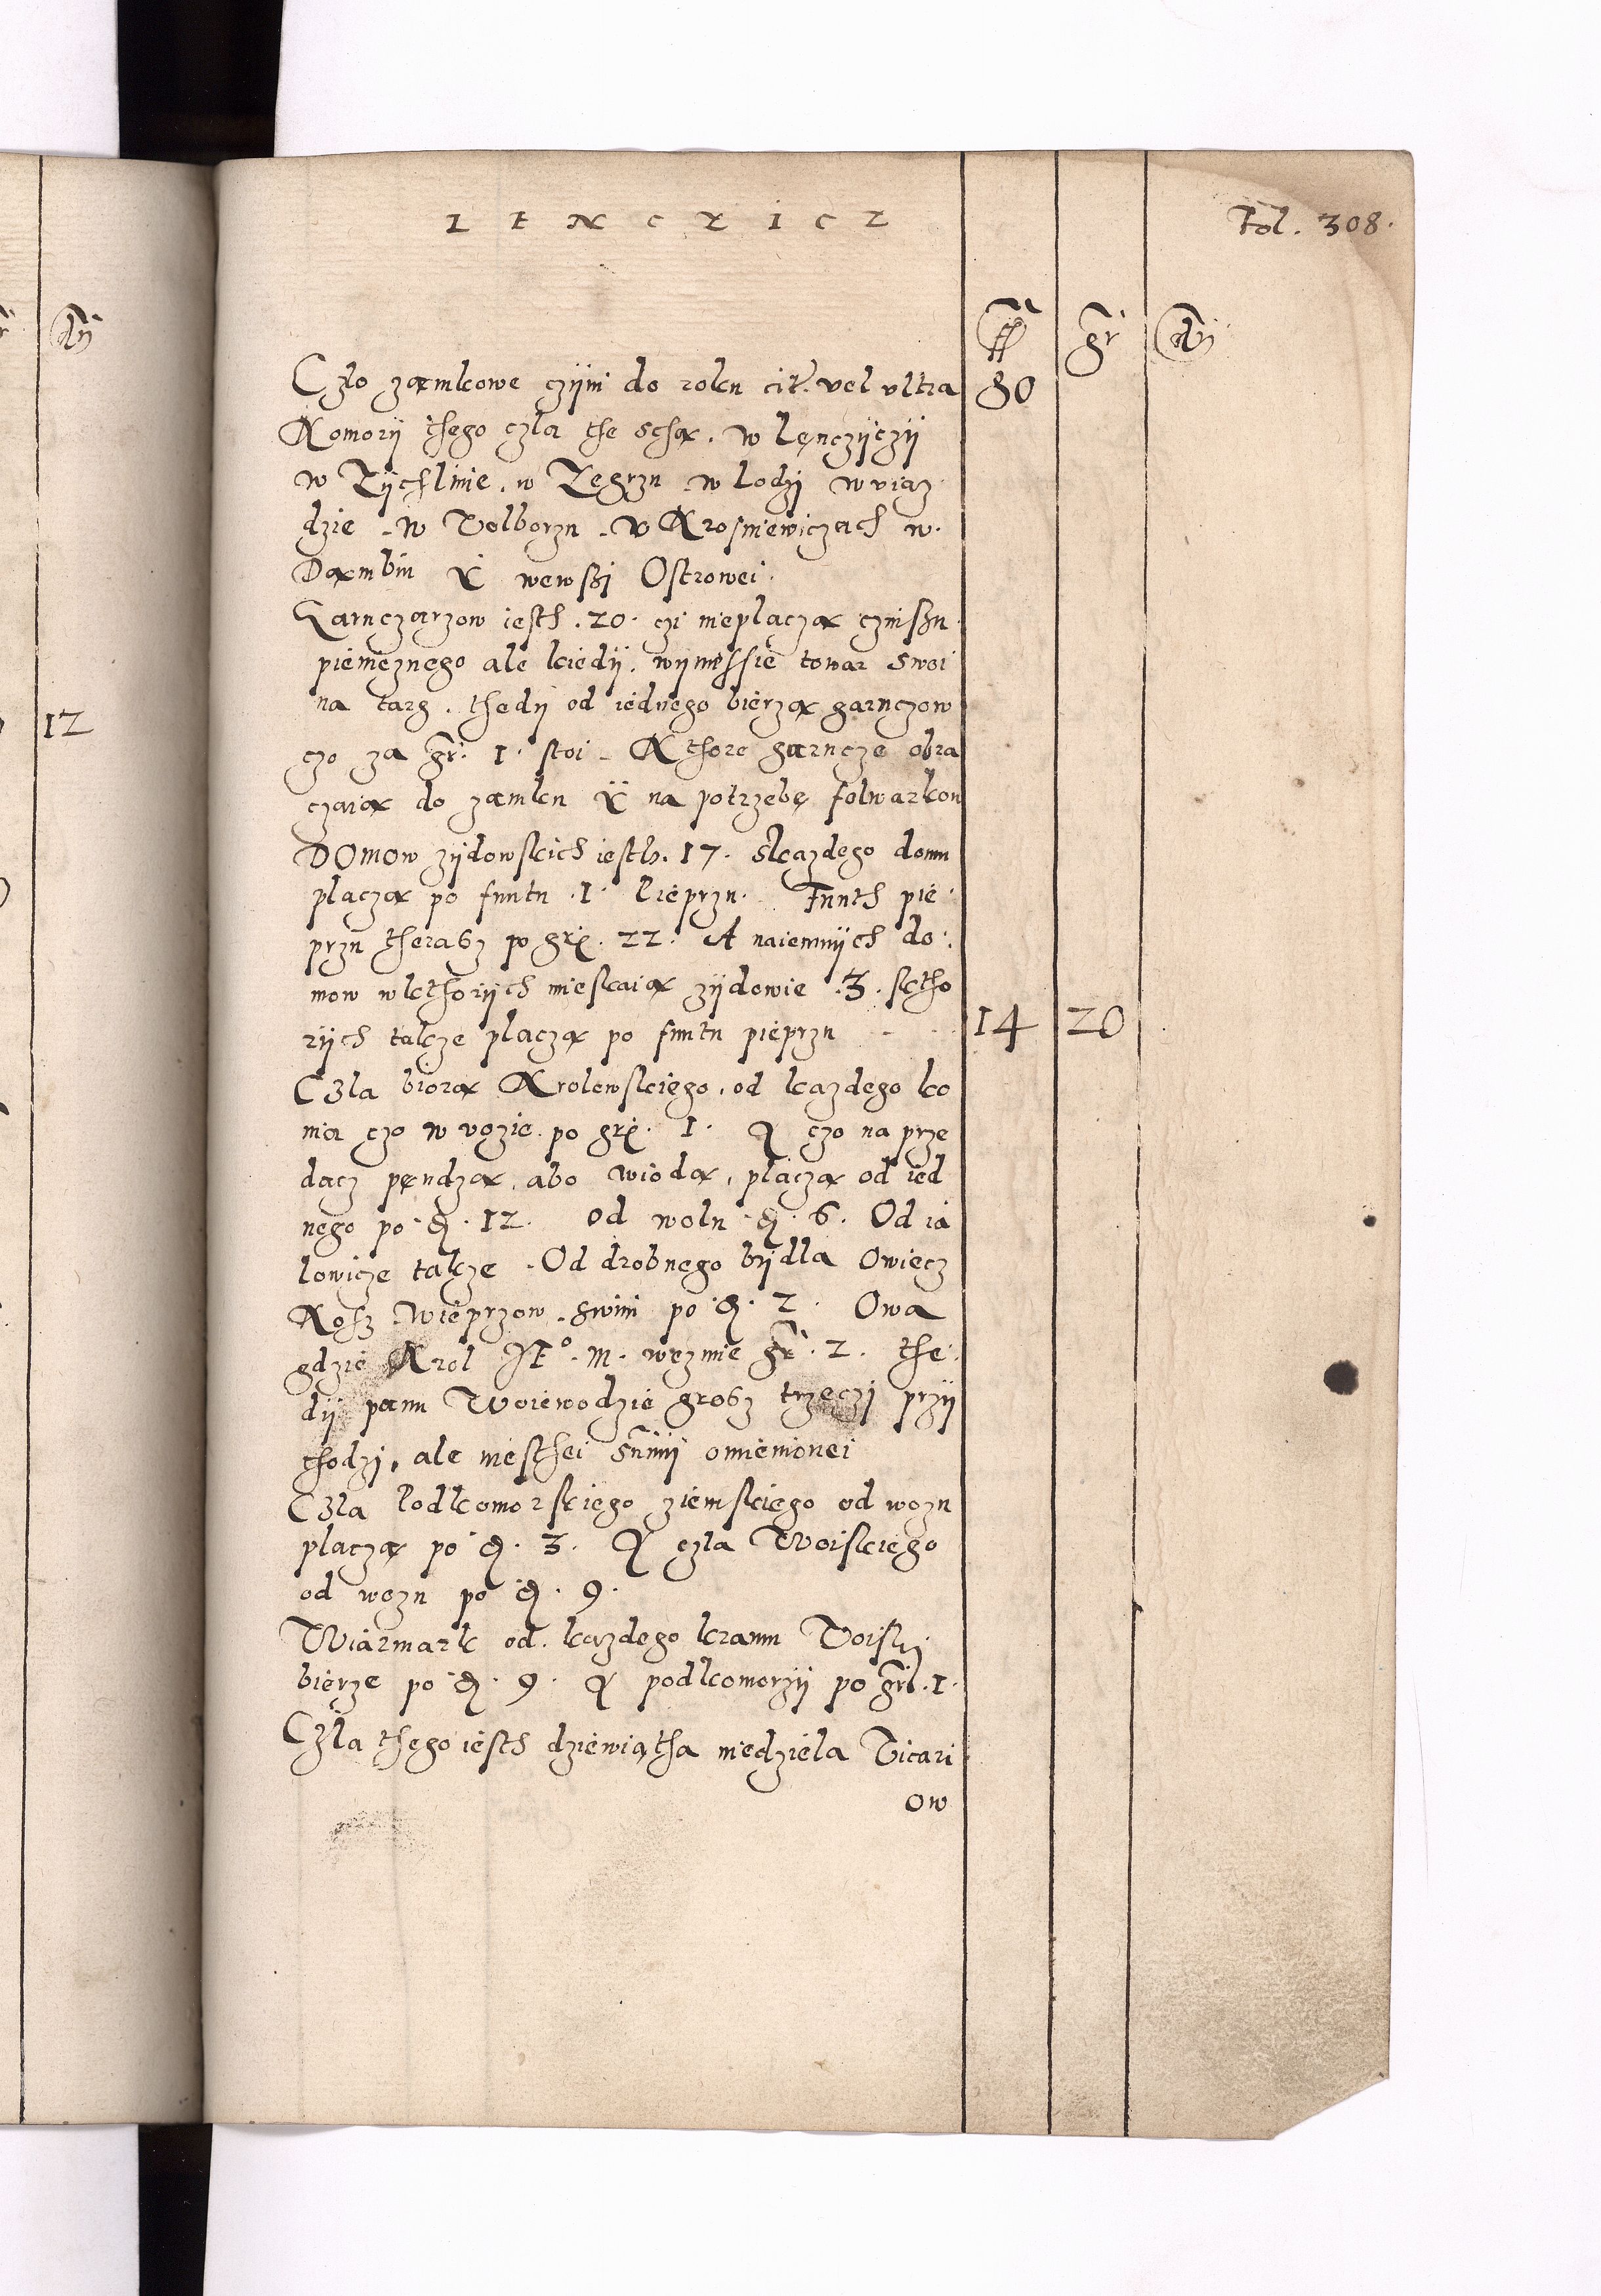 LENCZICZ
Fol. 308.
ff gr dn
Czło zamkowe czyni do roku cit. vel vltra 80
Komory thego czła the sthą. w Lęnczyczy
w Zychlinie. w Zegrzu w Lodzi w viaz
dzie w Volborzu w Krosniewiczach w
Dąmbiu Y wewssi Ostrowei.
Garnczarzow iesth .20. czi nieplaczą czinssu
pienieznego ale kiedy. wyniessie towar swoi
na targ. thedy od iednego bierzą garnczow
czo za gr. 1. stoi Kthore garncze obra
czaią do zamku Y na potrzebę folwarkow
DOMOW zydowskich iesth. 17. skazdego domu
placzą po funtu .1. Pieprzu. Funth pie
przu therasz po grz. 22. A naiemnych do
mow wkthorych mieskaią zydowie .3. sktho
rych takze placzą po funtu pieprzu 14 20
Czla biorą Krolewskiego, od kazdego ko
nia czo w vozie po grz. 1. A czo na prze
dacz pęndzą, abo wiodą, placzą od ied
nego po d. 12. Od wolu d. 6. Od ia
lowicze takze Od drobnego bydla Owiecz
Kosz Wieprzow swini po d. 2. Owa
gdzie Krol Je°. M. wezmie gr. 2. the
dy panu Woiewodzie grosz trzeczi przy
chodzi, ale niesthei summy omienionei
Czla Podkomorskiego ziemskiego od wozu
placzą po d. 3. A czla Woiskiego
od wozu po d. 9.
Wiarmark od kazdego kramu Voiski
bierze po d. 9. A podkomorzy po gr. 1.
Czla thego iesth dziewiątha niedziela Vicari
ow
dn
12